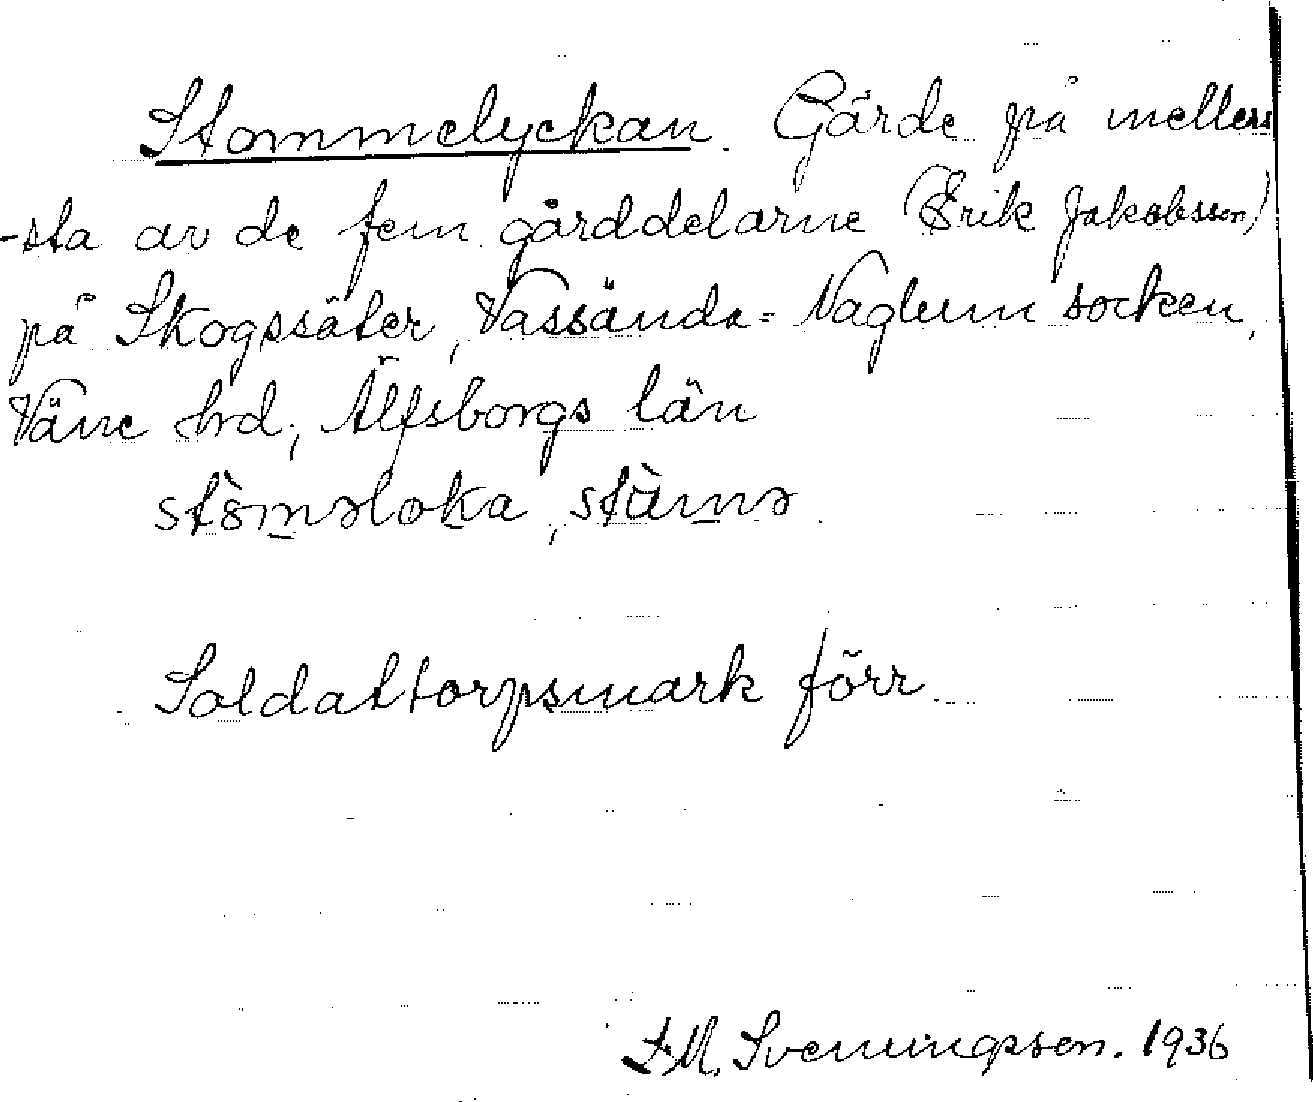 Stommelyckan. Gärde på mellers
-sta av de fem gårddelarne (Erik Jakobsson)
på Skogssäter, Vassända-Naglum socken,
Väne hrd, Älfsborgs län
stöməloka, stämə
Soldattorpsmark förr.
F.M. Svenningsson. 1936